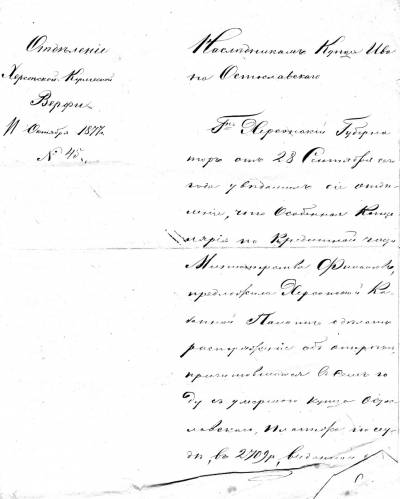 Отдѣленіе
Херсонской Купеческой
Верфи
11 Октября 1877 г.
№ 45.
Наслѣдникамъ Купца Ива-
на Остославскаго
Гнъ Херсонскій Губерна
торъ отъ 28 Сентября сего
года увѣдомилъ сіе отдѣ
леніе, что Особенная Канце
лярія по Кредитной части
Министерства Финансовъ,
предложила Херсонской Ка
зенной Палатѣ сдѣлать
распоряженіе объ отсрочкѣ
причитающагося въ семъ го
ду съ умершаго купца Осто
славскаго, платежа по ссу
дѣ, въ 2409 р, выданной